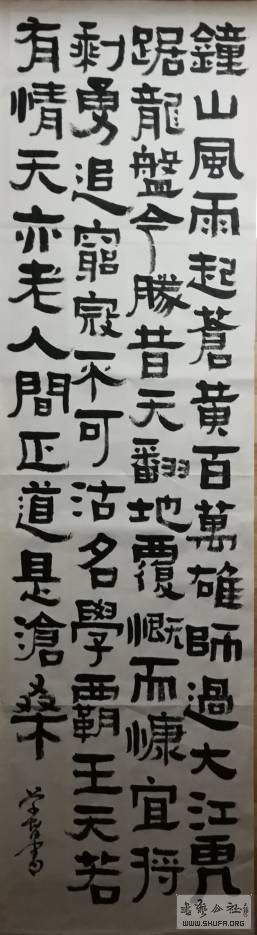 鐘山風雨起蒼黃百萬雄師過大江虎
踞龍盤今勝昔天翻地覆慨而慷宜將
剩勇追窮寇不可沽名學霸王天若
有情天亦老人間正道是滄桑
書藝公社
WWW.SHUFA.ORG